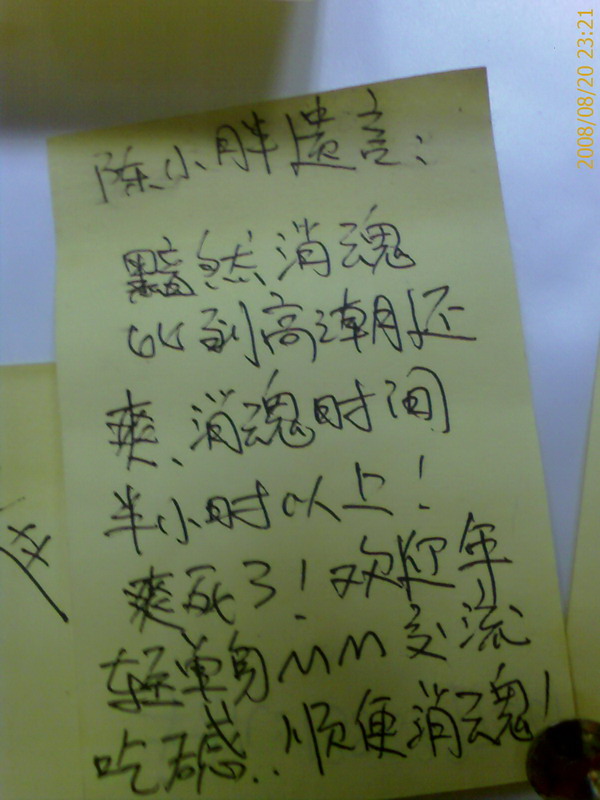 2008/08/20 23:21
陈小胖遗言：
黯然消魂
比到高潮还
爽、消魂时间
半小时以上！
爽死了！欢迎年
轻单身MM交流
吃后感..顺便消魂！